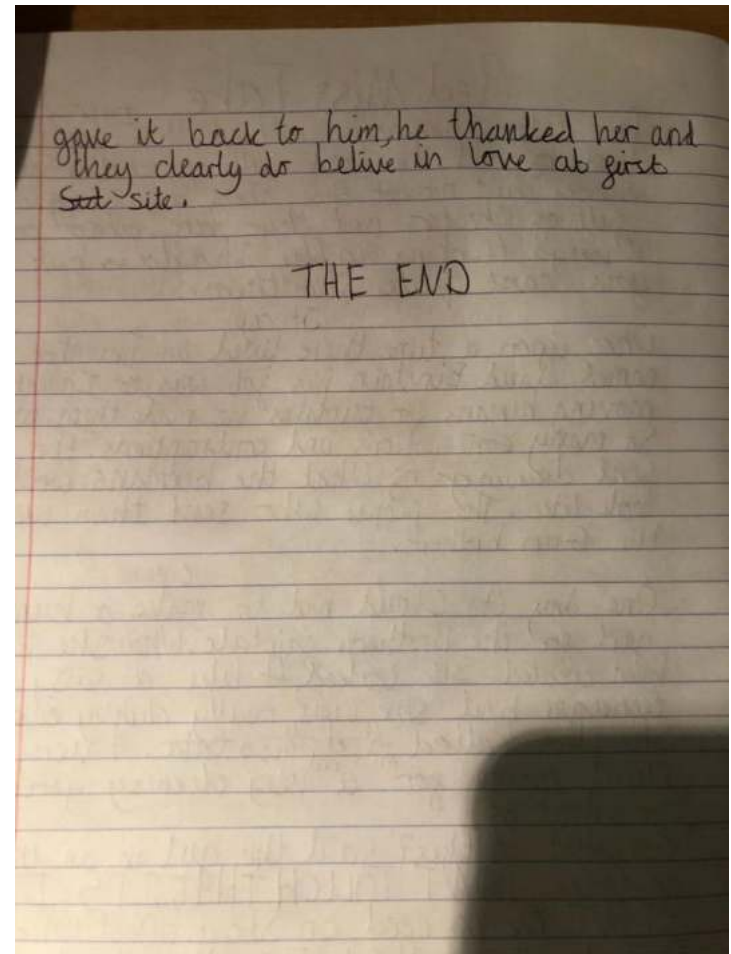 gave it back to him, he thanked her and
they clearly do belive in love at first
Sut site.
THE END